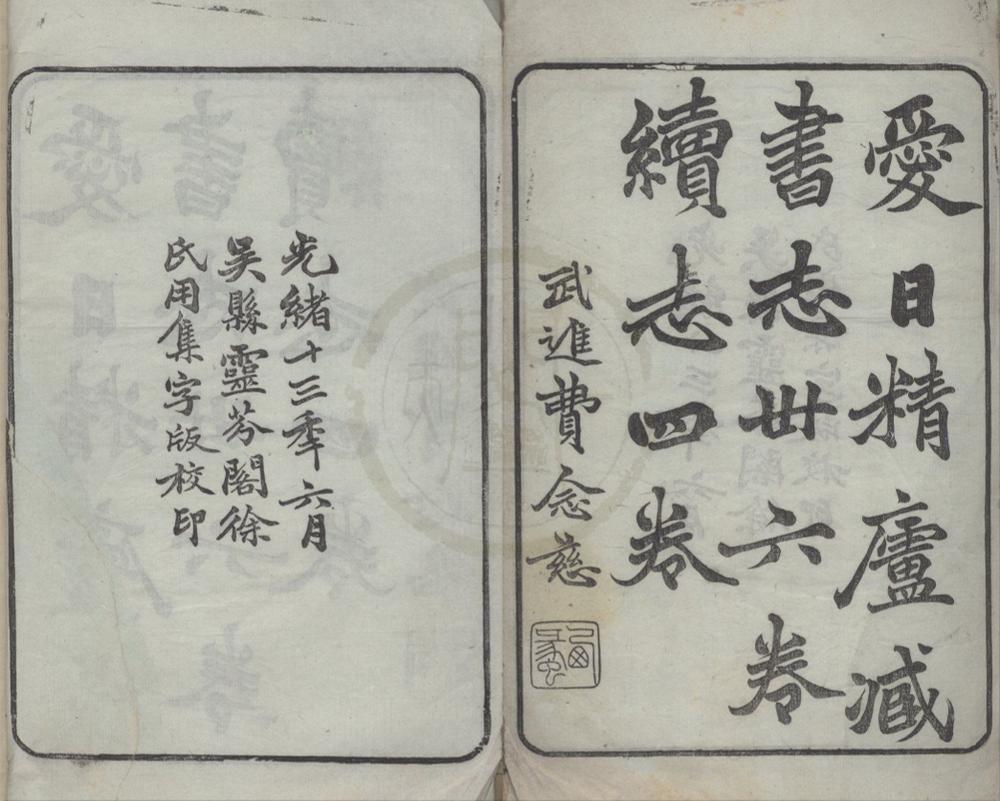 愛日精廬臧
書志卅六卷
續志四卷
武進費念慈
光緒十三秊六月
吳縣靈芬閣徐
氏用集字版校印